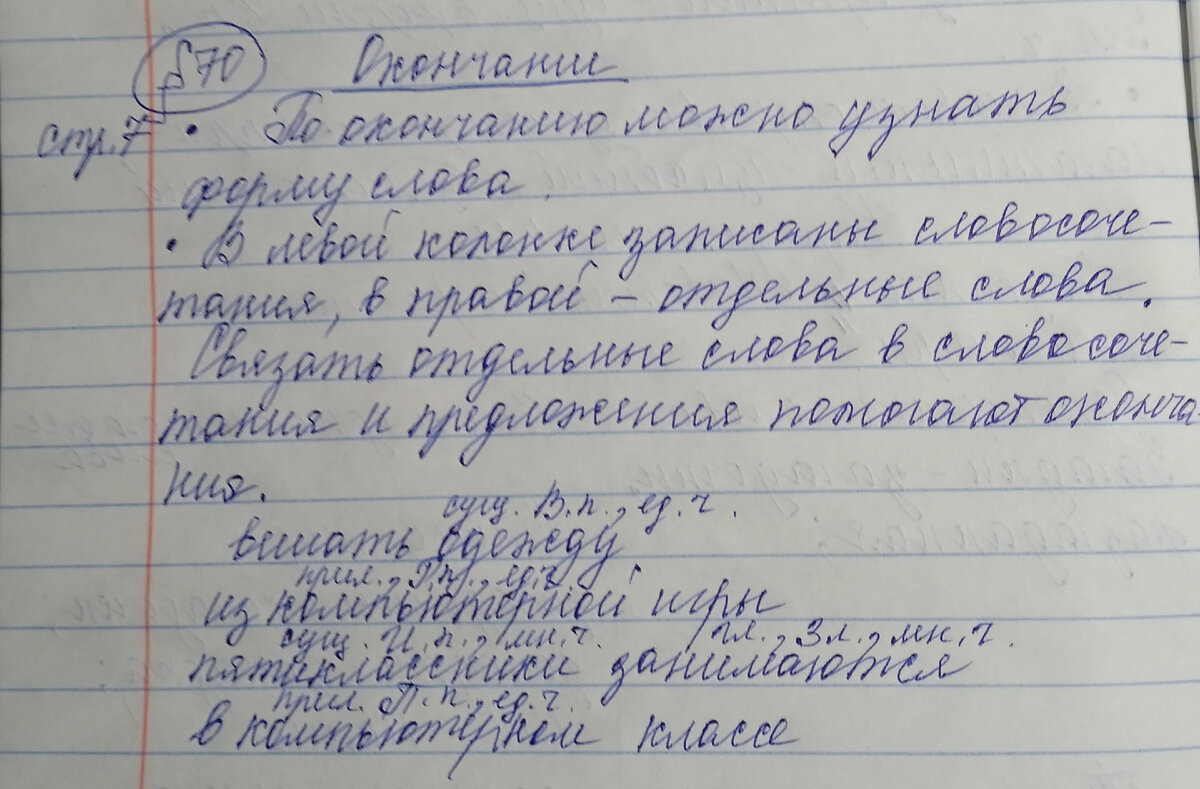 §70 Окончание
стр.7 • По окончанию можно узнать
форму слова.
• В левой колонке записаны словосоче-
тания, в правой – отдельные слова.
Связать отдельные слова в словосоче-
тания и предложения помогают оконча
ния.
сущ. В.п., ед.ч.
вешать одежду
прил., Р.п., ед.ч.
из компьютерной игры
сущ. И.п., мн.ч. гл., 3л., мн.ч.
пятиклассники занимаются
прил. П.п., ед.ч.
в компьютерном классе